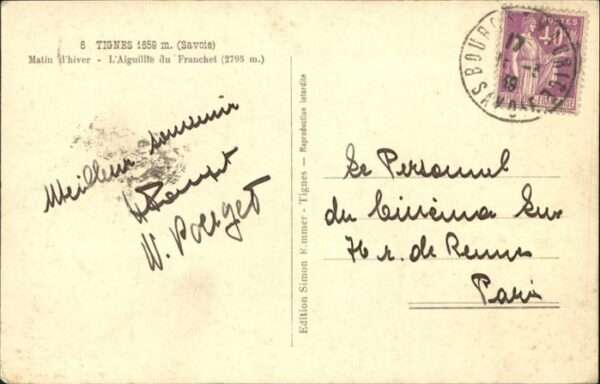 6 TIGNES 1659 m. (Savoie)
Matin d'hiver - L'Aiguille du Franchet (2795 m.)
Meilleur souvenir
W. Poetget
Edition Simon Emmer - Tignes - Reproduction interdite
POSTES
40
BOURG
SAVOIE
17
Le Personnel
du Cinéma Lux
76 r. de Rennes
Paris